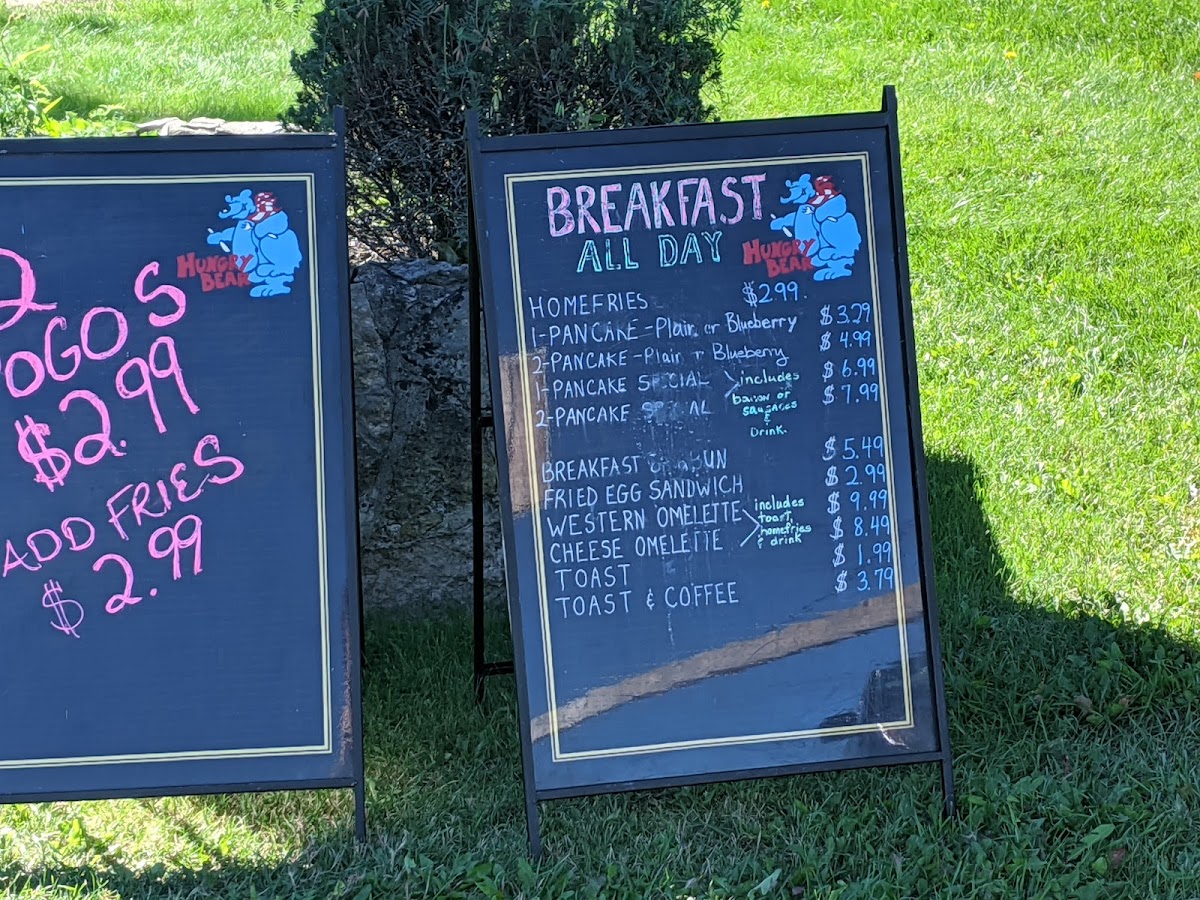 2
OGOS
$2.99
ADD FRIES
$2.99
HUNGRY
BEAR
BREAKFAST
ALL DAY
HUNGRY
BEAR
HOMEFRIES $2.99.
1-PANCAKE - Plain or Blueberry $3.29
2-PANCAKE - Plain or Blueberry $4.99
1-PANCAKE SPECIAL $6.99
2-PANCAKE SPECIAL $7.99
includes
bacon or
sausages
&
Drink.
BREAKFAST ON A BUN $5.49
FRIED EGG SANDWICH $2.99
WESTERN OMELETTE $9.99
CHEESE OMELETTE $8.49
includes
toast,
homefries
& drink
TOAST $1.99
TOAST & COFFEE $3.79